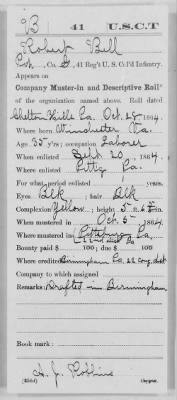 B 41 U.S.C.T.
Robert Bell
Co. G, 41 Reg't U.S. Col'd Infantry.
Appears on
Company Muster-in and Descriptive Roll
of the organization named above. Roll dated
Chelten Hills Pa. Oct. 25, 1864.
Where born Winchester Va.
Age 35 y'rs; occupation Laborer
When enlisted Sept. 20, 1864.
Where enlisted Pittg Pa.
For what period enlisted years.
Eyes Blk; hair Blk
Complexion Yellow; height 5 ft. in.
When mustered in Oct 5, 1864.
Where mustered in Pittsburg Pa.
Bounty paid $ 100; due $ 100
Where credited Birmingham Pa. 22 Cong. dist
Company to which assigned
Remarks: Drafted in Birmingham
Book mark:
H. J. Robbins
Copyist.